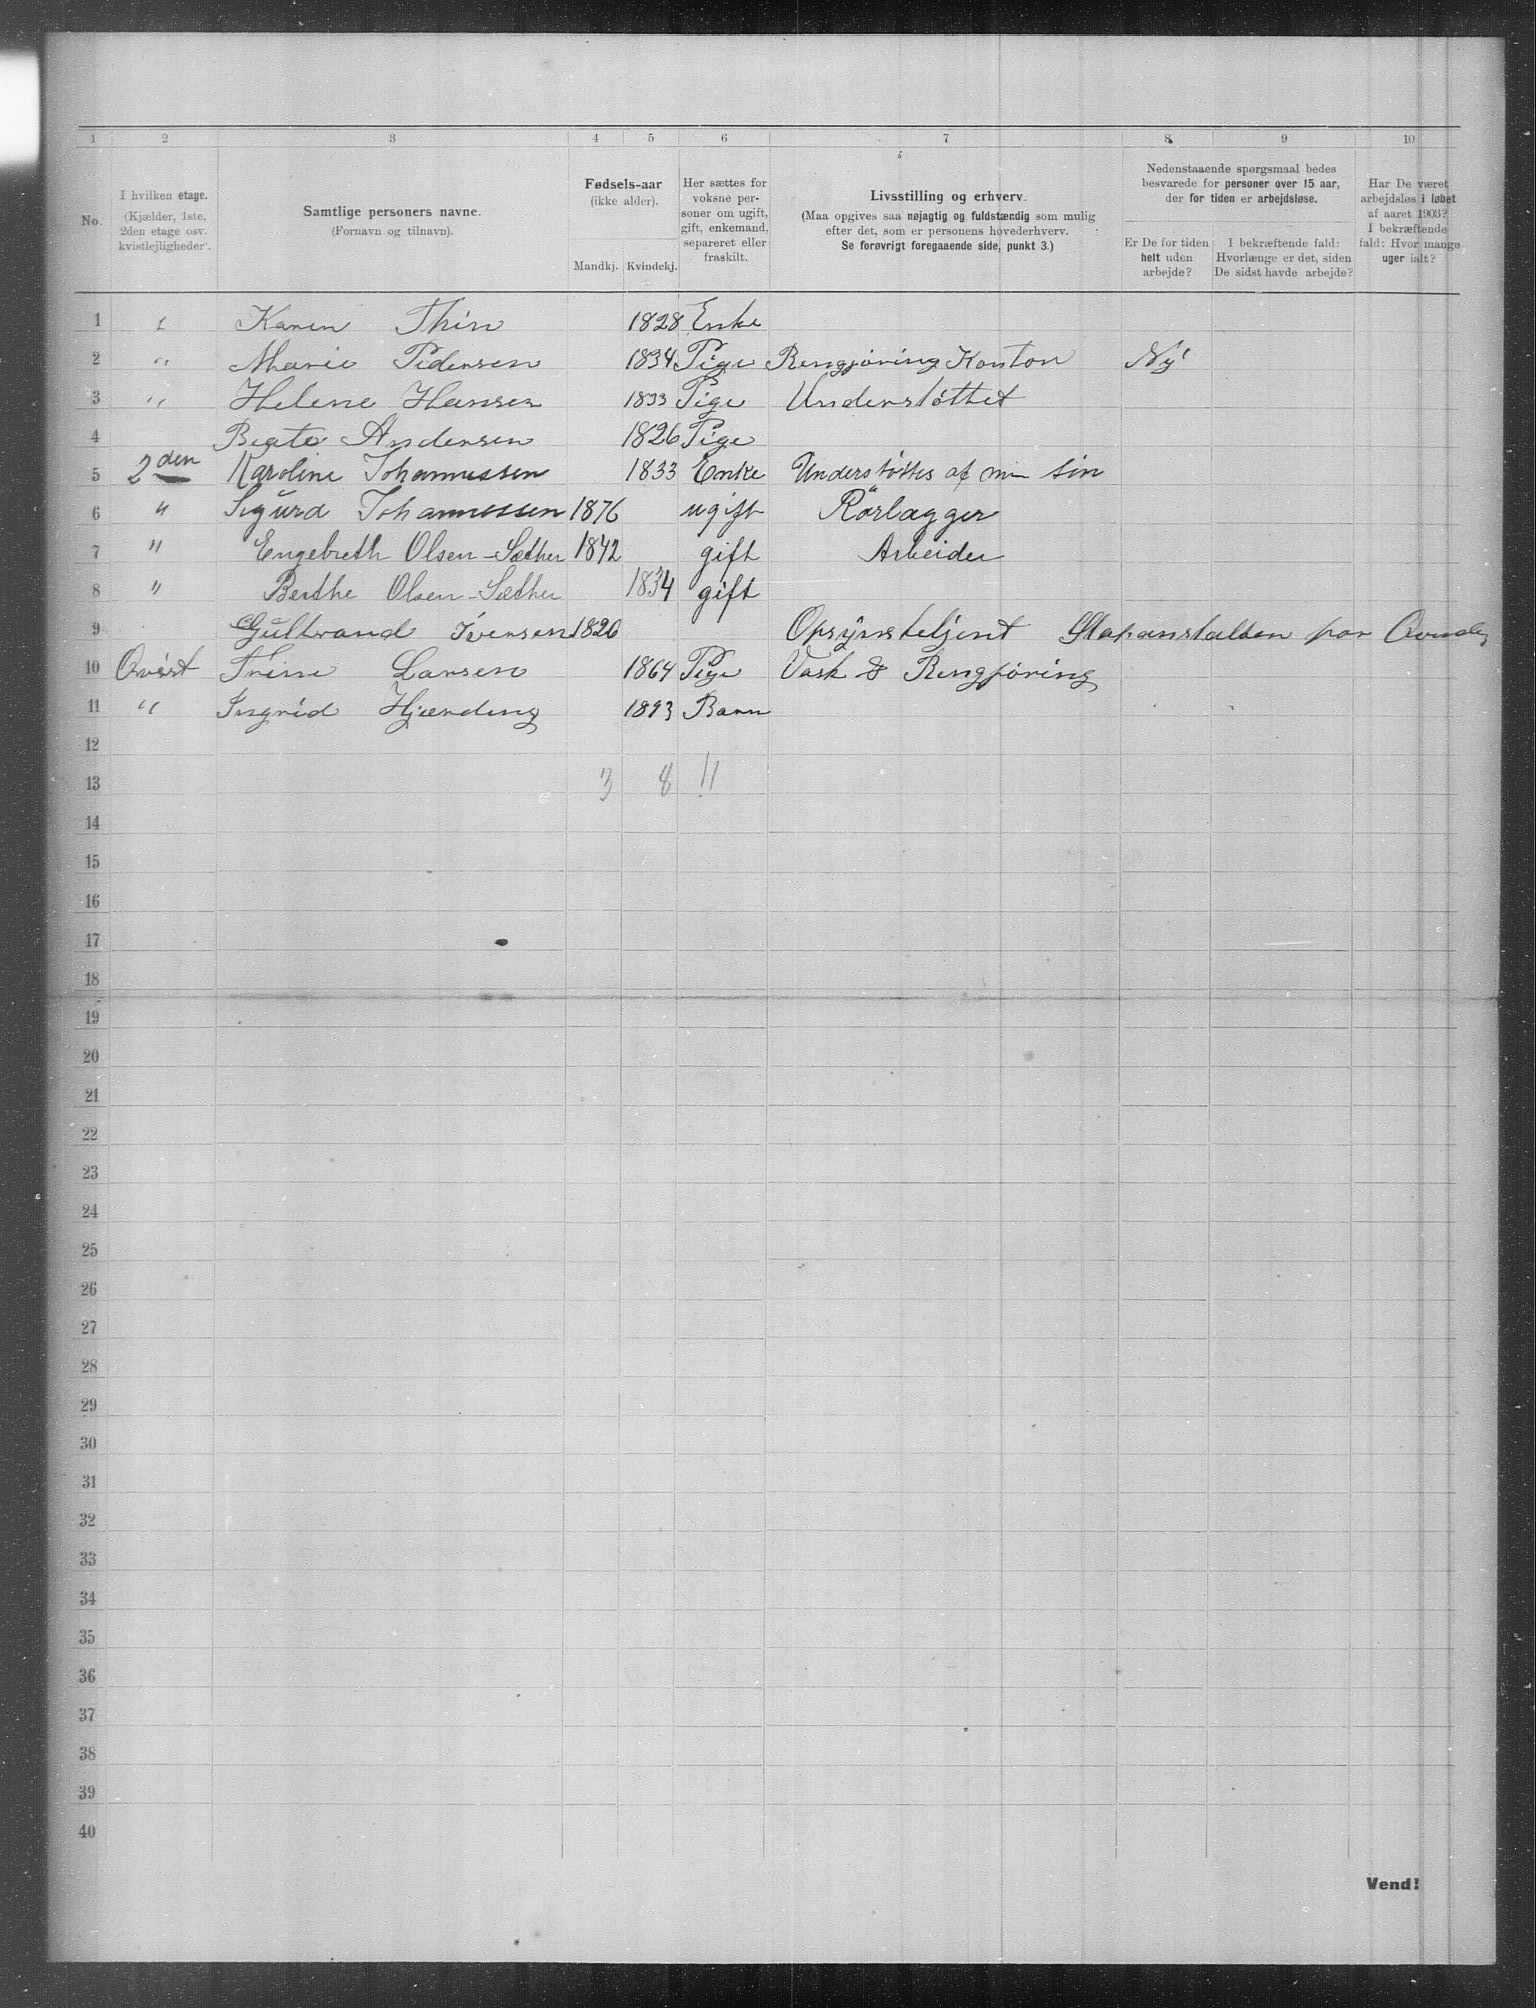 1 2 3 4 5 6 7 8 9 10
No.
I hvilken etage.
(Kjælder, 1ste,
2den etage osv.
kvistlejligheder).
Samtlige personers navne.
(Fornavn og tilnavn).
Fødsels-aar
(ikke alder).
Mandkj. Kvindekj.
Her sættes for
voksne per-
soner om ugift,
gift, enkemand,
separeret eller
fraskilt.
Livsstilling og erhverv.
(Maa opgives saa nøjagtig og fuldstændig som mulig
efter det, som er personens hovederhverv.
Se forøvrigt foregaaende side, punkt 3.)
Nedenstaaende spørgsmaal bedes
besvarede for personer over 15 aar,
der for tiden er arbejdsløse.
Er De for tiden
helt uden
arbejde?
I bekræftende fald:
Hvorlænge er det, siden
De sidst havde arbejde?
Har De været
arbejdsløs i løbet
af aaret 1903?
I bekræftende
fald: Hvor mange
uger ialt?
1 " Karen Thin 1828 Enke
2 " Marie Pedersen 1834 Pige Rengjøring Kontor Nÿ
3 " Helene Hansen 1833 Pige Understøttet
4 Beate Andersen 1826 Pige
5 2den Karoline Johannessen 1833 Enke Understøttes af min sön
6 " Sigurd Johannessen 1876 ugift Rörlægger
7 " Engebreth Olsen-Sæther 1842 gift Arbeider
8 " Berthe Olsen-Sæther 1834 gift
9 Gulbrand Iversen 1826 Opsÿnsbetjent
10 Qvist Trine Larsen 1864 Pige Vask & Rengjøring
11 " Ingrid Hjærding 1893 Barn
12
13 3 8 11
14
15
16
17
18
19
20
21
22
23
24
25
26
27
28
29
30
31
32
33
34
35
36
37
38
39
40
Vend!